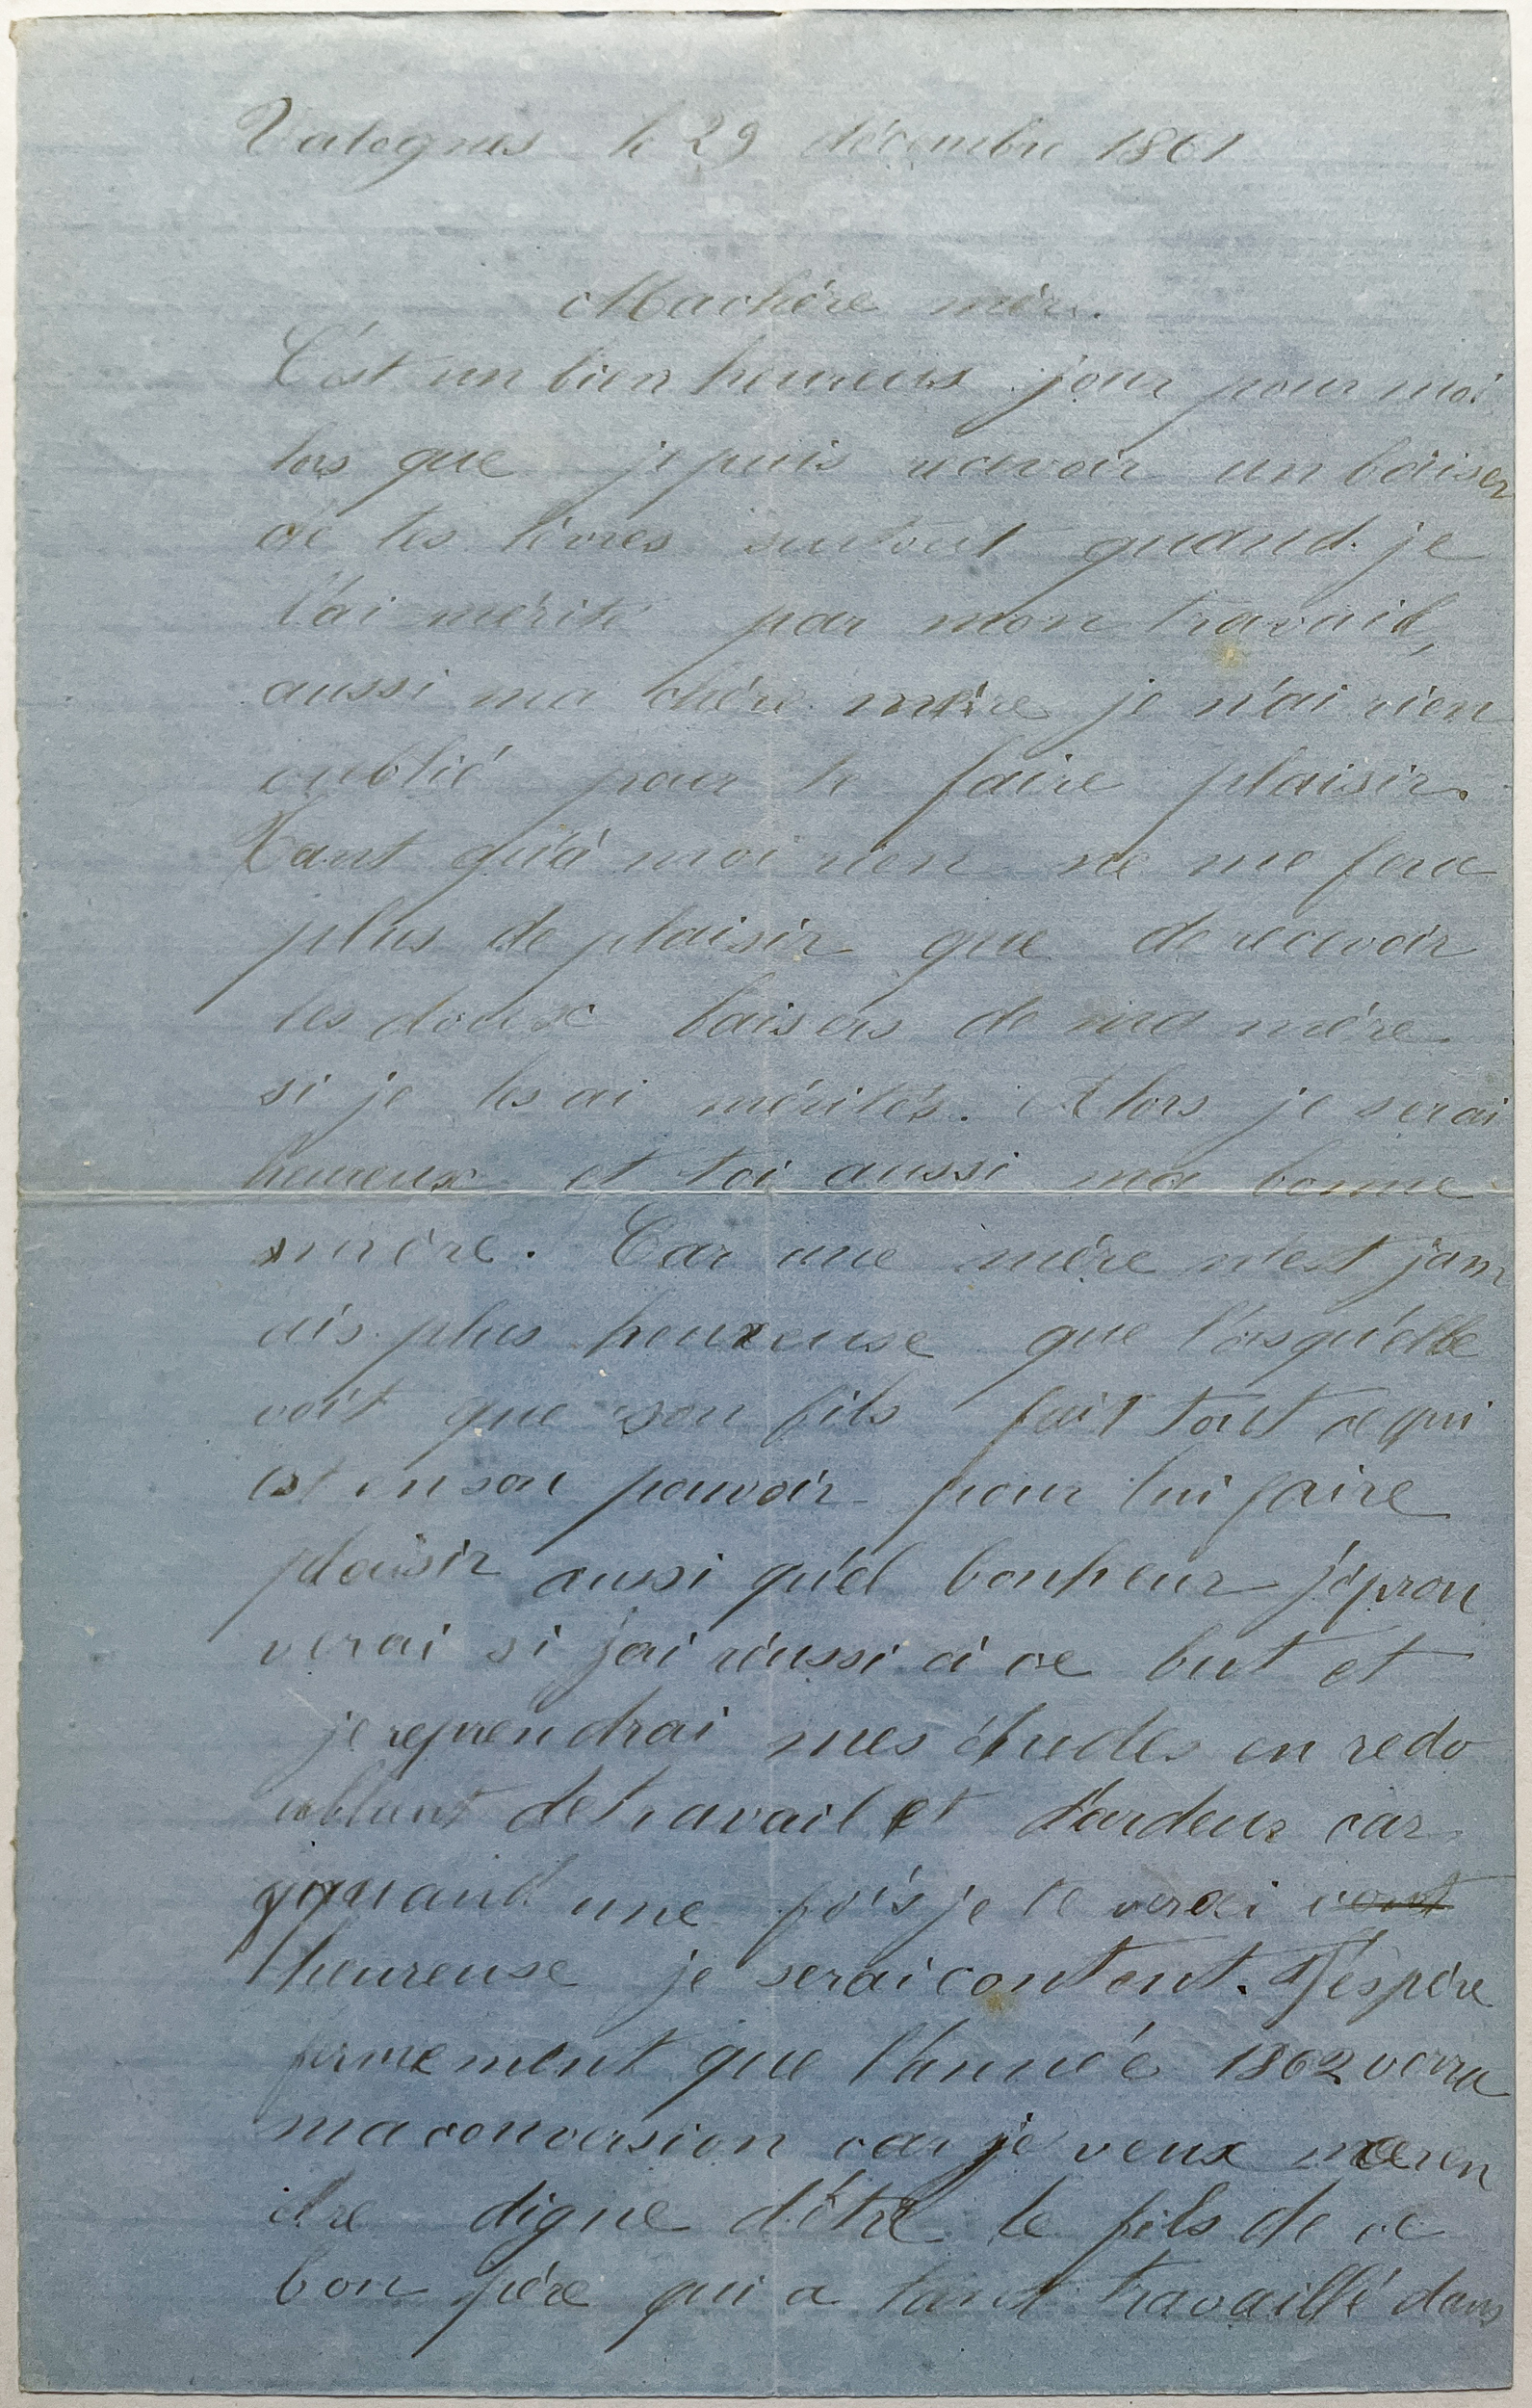 Valognes le 29 décembre 1861
Ma chère mère.
C'est un bien heureux jour pour moi
lors que je puis recevoir un baiser
de tes lèvres surtout quand je
l'ai mérité par mon travail,
aussi ma chère mère je n'ai rien
oublié pour te faire plaisir.
Tant qu'à moi rien ne me fera
plus de plaisir que de recevoir
les doux baisers de ma mère
si je les ai mérités. Alors je serai
heureux et toi aussi ma bonne
mère. Car une mère n'est jam
ais plus heureuse que l'orsqu'elle
voit que son fils fait tout ce qui
est en son pouvoir pour lui faire
plaisir aussi qu'el bonheur j'éprou
verai si j'ai réussi à ce but et
je reprendrai mes études en redo
ublant de travail et d'ardeur car
quand une fois je te verai cont
heureuse je serai content. J'éspère
fermement que l'année 1862 verra
ma conversion car je veux me ren
dre digne d'être le fils de ce
bon père qui a tant travaillé dans